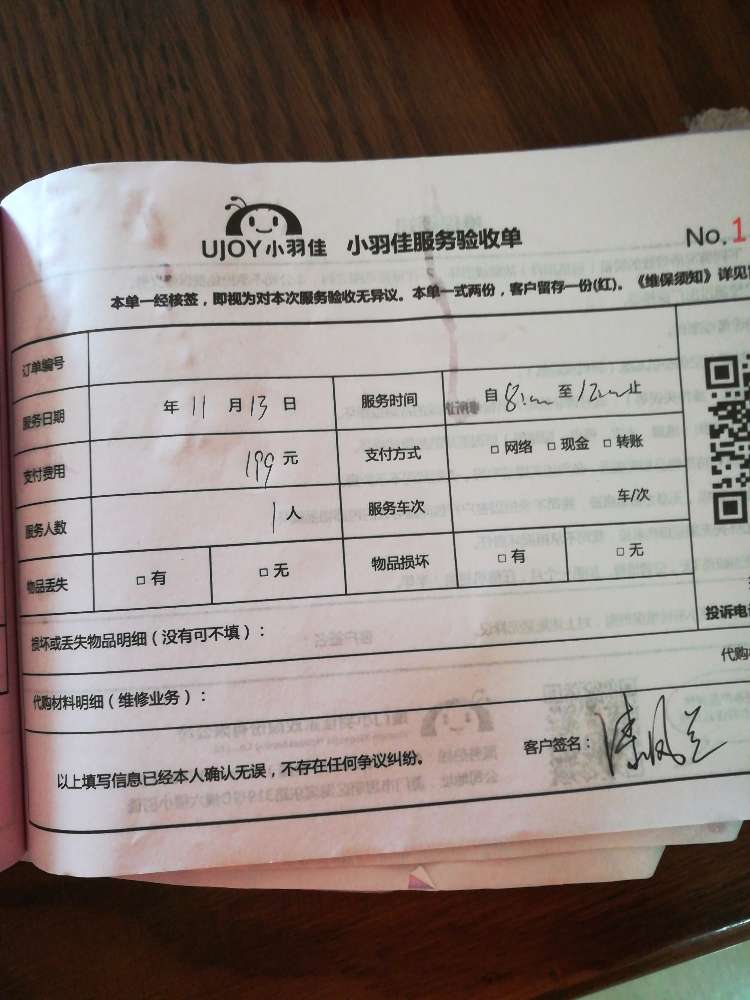 UJOY小羽佳 小羽佳服务验收单 No.1
本单一经核签，即视为对本次服务验收无异议。本单一式两份，客户留存一份(红)。《维保须知》详见
订单编号
服务日期 年 11 月 13 日 服务时间 自 8:00 至 12:00 止
支付费用 199 元 支付方式 □ 网络 □ 现金 □ 转账
服务人数 1 人 服务车次 车/次
物品丢失 □ 有 □ 无 物品损坏 □ 有 □ 无
投诉电
损坏或丢失物品明细（没有可不填）：
代购
代购材料明细（维修业务）：
以上填写信息已经本人确认无误，不存在任何争议纠纷。 客户签名：